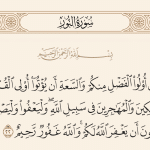 سُورَةُ النُّورِ
بِسْمِ اللَّهِ الرَّحْمَٰنِ الرَّحِيمِ
أُوْلُواْ ٱلْفَضْلِ مِنكُمْ وَٱلسَّعَةِ أَن يُؤْتُوٓاْ أُوْلِى
وَٱلْمُهَٰجِرِينَ فِى سَبِيلِ ٱللَّهِ ۖ وَلْيَعْفُواْ
أَن يَغْفِرَ ٱللَّهُ لَكُمْ ۗ وَٱللَّهُ غَفُورٌ رَّحِيمٌ ٢٢